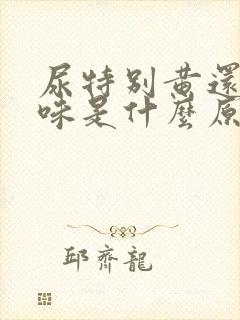 尿特別黃還
味是什麼原
邱齊龍